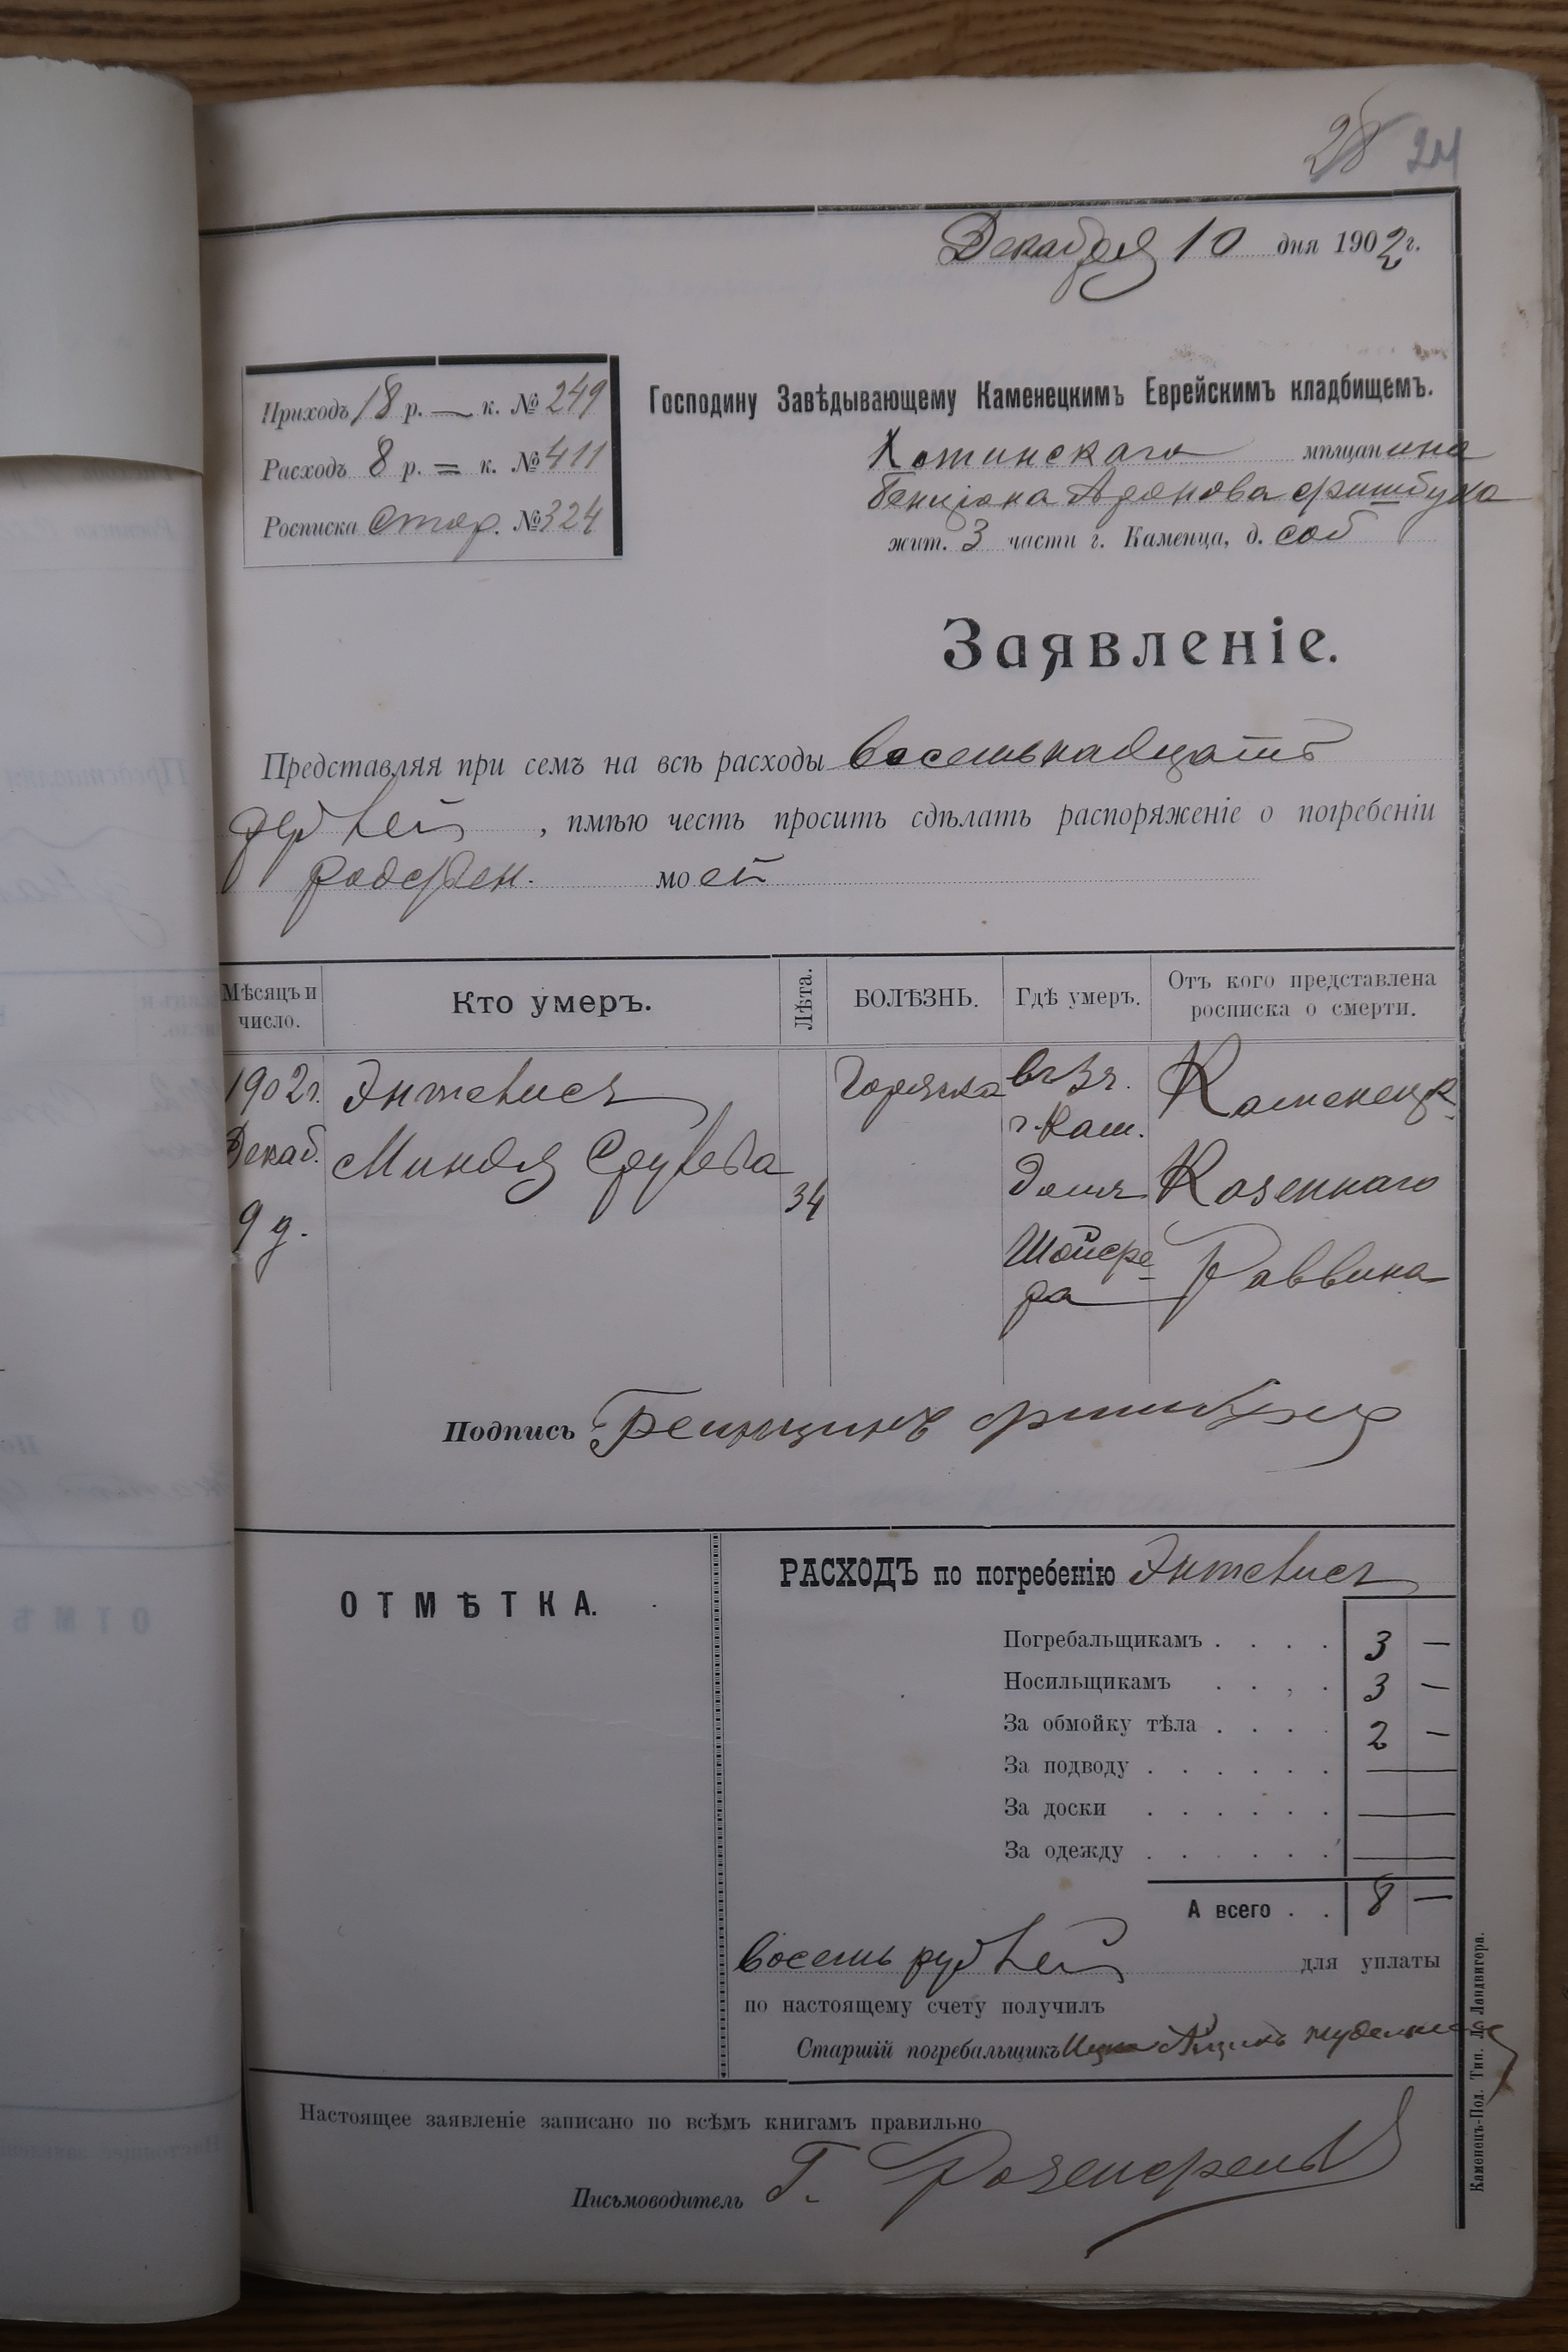 28 24
Декабря 10 дня 1902 г.
Приходъ 18 р. — к. № 249
Расходъ 8 р. = к. № 411
Росписка стар. № 324
Господину Завѣдывающему Каменецкимъ Еврейскимъ кладбищемъ.
Хотинскаго мѣщанина
Бенціона Аронова Фишбука
жит. 3 части г. Каменца, д. соб
Заявленіе.
Представляя при семъ на всѣ расходы восемьнадцать
рублей, имѣю честь просить сдѣлать распоряженіе о погребеніи
родствен. моей
Мѣсяцъ и число.
Кто умеръ.
Лѣта.
БОЛѢЗНЬ.
Гдѣ умеръ.
Отъ кого представлена росписка о смерти.
1902 г. Декаб. 9 д.
Энтелисъ
Миндя Срулева
34
Горячка
въ 3 ч.
г. Кам.
домъ
Каменецк.
Казеннаго
Раввина
Подпись
РАСХОДЪ по погребенію Энтелисъ
ОТМѢТКА.
Погребальщикамъ . . . . 3 —
Носильщикамъ . . . . 3 —
За обмойку тѣла . . . . 2 —
За подводу . . . . . . —
За доски . . . . . . —
За одежду . . . . . . —
А всего . . 8 —
восемь рублей для уплаты
по настоящему счету получилъ
Старшій погребальщикъ
Настоящее заявленіе записано по всѣмъ книгамъ правильно
Письмоводитель Г.
Каменецъ-Под. Тип. Д. Ландвигера.